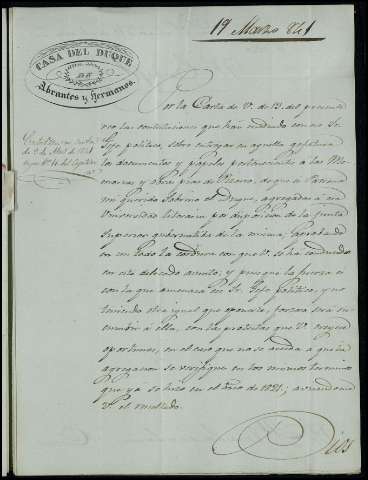 19 Marzo 841
CASA DEL DUQUE
DE
Abrantes y hermanos.
Por la Carta de V. de 12. del presente
veo las contestaciones que han mediado con ese Sr.
Gefe politico, sobre entregar en aquella gefatura
los documentos y papeles pertenecientes a las
y obras pias de
mi querido Sobrino el Duque, agregadas á esa
Universidad literaria por disposicion de la Junta
Superior gubernativa de la misma; aprobando
en un todo la cordura con que V. se ha conducido
en este delicado asunto; y puesque la fuerza es
con la que amenaza ese Sr. Gefe politico, y no
teniendo otra igual que oponerle, forzoso será su-
cumbir á ella, con las protestas que V. crea
oportunas, en el caso que no se acceda a que la
agregacion se verifique en los mismos terminos
que ya se hizo en el año de 1821; avisandome
V. el resultado.
Dios